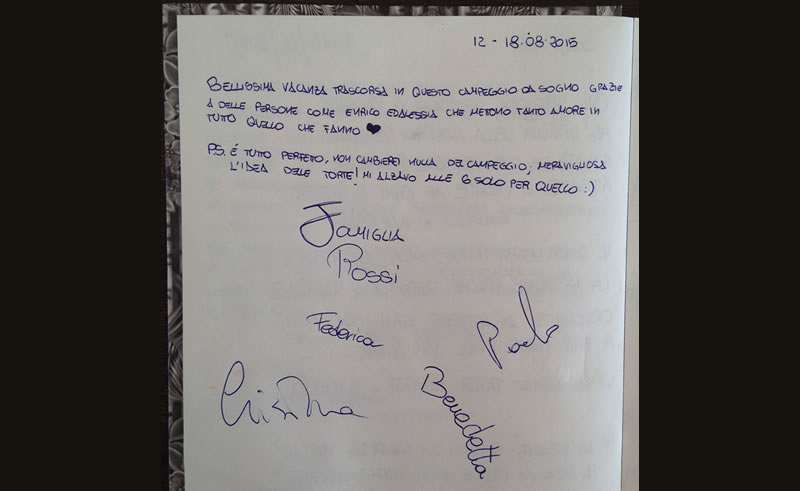 12 - 18.08.2015
BELLISSIMA VACANZA TRASCORSA IN QUESTO CAMPEGGIO DA SOGNO GRAZIE
A DELLE PERSONE COME ENRICO ED ALESSIA CHE METTONO TANTO AMORE IN
TUTTO QUELLO CHE FANNO ♥
PS. É TUTTO PERFETTO, NON CAMBIEREI NULLA DEL CAMPEGGIO; MERAVIGLIOSA
L'IDEA DELLE TORTE! MI ALZAVO ALLE 6 SOLO PER QUELLO :)
FAMIGLIA
ROSSI
Federica
Paolo
Cristina
Benedetta